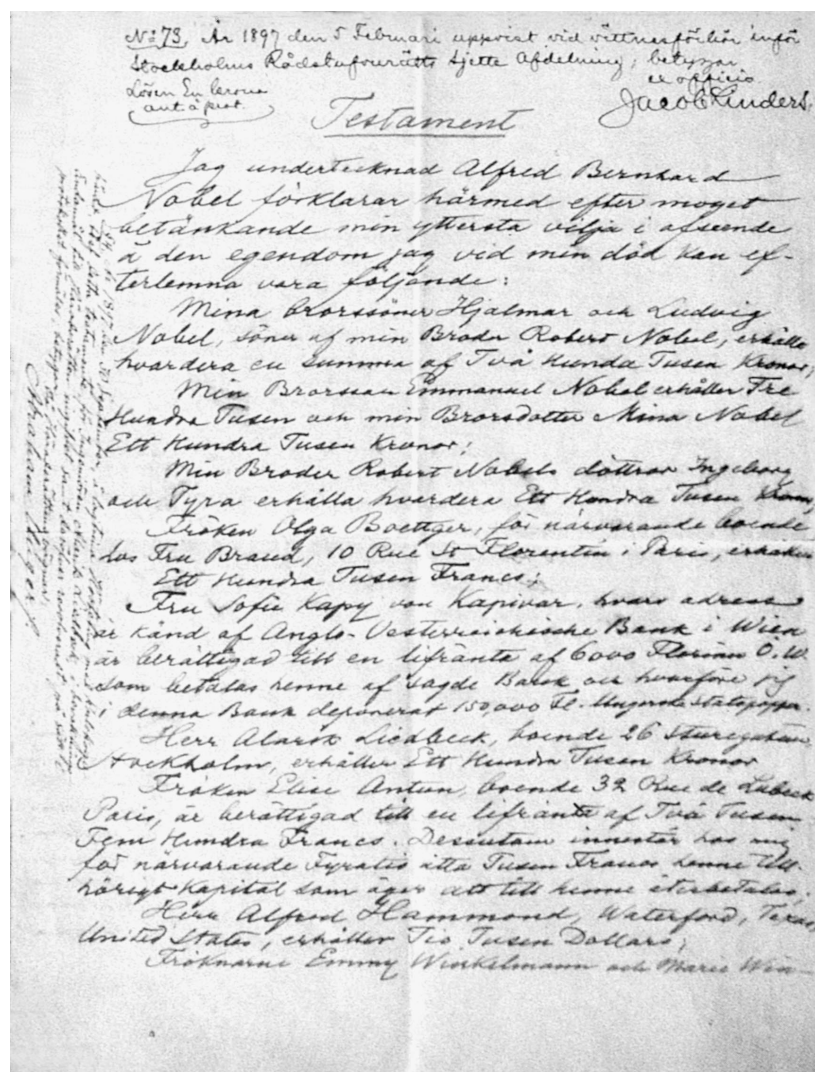 No 73. År 1897 den 5 Februari uppvist vid vittnesförhör inför
Stockholms Rådstufvurätts Sjette Afdelning; betygar
Lösen En krona ex officio
Jacob Linders.
Testament
Jag undertecknad Alfred Bernhard
Nobel förklarar härmed efter moget
betänkande min yttersta vilja i afseende
å den egendom jag vid min död kan ef-
terlemna vara följande:
Mina brorssöner Hjalmar och Ludvig
Nobel, söner af min Broder Robert Nobel, erhålla
hvardera en summa af Två Hundra Tusen Kronor;
Min Brorsson Emmanuel Nobel erhåller Tre
Hundra Tusen och min Brorsdotter Mina Nobel
Ett Hundra Tusen Kronor;
Min Broder Robert Nobels döttrar Ingeborg
och Tyra erhålla hvardera Ett Hundra Tusen Kronor;
Fröken Olga Boettger, för närvarande boende
hos Fru Brand, 10 Rue St Florentin i Paris, erhåller
Ett Hundra Tusen Francs;
Fru Sofie Kapy von Kapivar, hvars adress
är känd af Anglo-Oesterreichische Bank i Wien
är berättigad till en lifränta af 6000 Florins Ö.W.
som betalas henne af sagde Bank och hvarföre jag
i denna Bank deponerat 150,000 Fl. Ungerska statspapper.
Herr Alarik Liedbeck, boende 26 Sturegatan,
Stockholm, erhåller Ett Hundra Tusen Kronor
Fröken Elise Antun, boende 32 Rue de Lubeck
Paris, är berättigad till en lifränta af Två Tusen
Fem Hundra Francs. Dessutom innestår hos mig
för närvarande Fyratio åtta Tusen Francs henne till-
hörigt Kapital som äger att till henne återbetalas;
Herr Alfred Hammond, Waterford, Texas,
United States, erhåller Tio Tusen Dollars;
Fröknarne Emmy Winkelmann och Marie Win-